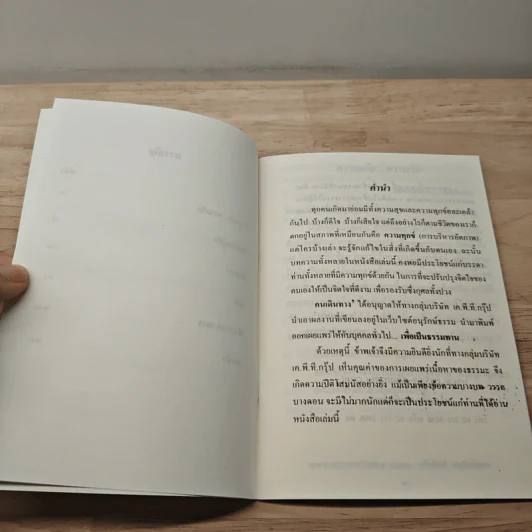 คำนำ
ทุกคนเกิดมาย่อมมีทั้งความสุขและความทุกข์คละเคล้า
กันไป บ้างก็ดีใจ บ้างก็เสียใจ แต่ถึงอย่างไรก็ตามชีวิตของเราก็
ตกอยู่ในสภาพที่เหมือนกันคือ ความทุกข์ (การบริหารอัตภาพ)
แต่ใครบ้างเล่า จะรู้จักแก้ไขในสิ่งที่เกิดขึ้นกับตนเอง ฉะนั้น
บทความทั้งหลายในหนังสือเล่มนี้ คงพอมีประโยชน์แก่บรรดา
ท่านทั้งหลายที่มีความทุกข์ด้วยกัน ในการที่จะปรับปรุงจิตใจของ
ตนเองให้เป็นจิตใจที่ดีงาม เพื่อรองรับซึ่งกุศลทั้งปวง
คนเดินทาง ได้อนุญาตให้ทางกลุ่มบริษัท เค.พี.ที.กรุ๊ป
นำเอาผลงานที่เขียนลงอยู่ในเว็บไซต์อนุรักษ์ธรรม นำมาพิมพ์
ออกเผยแพร่ให้กับบุคคลทั่วไป... เพื่อเป็นธรรมทาน
ด้วยเหตุนี้ ข้าพเจ้าจึงมีความยินดียิ่งนักที่ทางกลุ่มบริษัท
เค.พี.ที.กรุ๊ป เห็นคุณค่าของการเผยแพร่เนื้อหาของธรรมะ จึง
เกิดความปีติโสมนัสอย่างยิ่ง แม้เป็นเพียงข้อความบางบท วรรค
บางตอน จะมีไม่มากนักแต่ก็จะเป็นประโยชน์แก่ท่านที่ได้อ่าน
หนังสือเล่มนี้